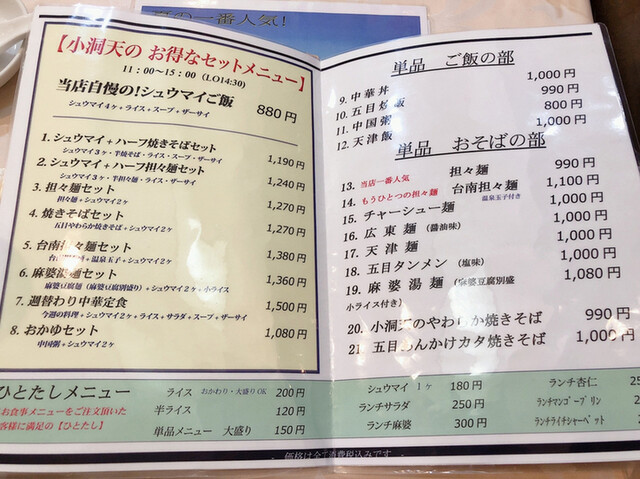 の一番人気!
【小洞天の お得なセットメニュー】
11：00～15：00（LO14:30）
当店自慢の!シュウマイご飯 880円
シュウマイ4ヶ+ライス+スープ+ザーサイ
1. シュウマイ+ハーフ焼きそばセット 1,190円
シュウマイ3ヶ・半焼そば・ライス・スープ・ザーサイ
2. シュウマイ+ハーフ担々麺セット 1,240円
シュウマイ3ヶ・半担々麺・ライス・ザーサイ
3. 担々麺セット 1,270円
担々麺+シュウマイ2ヶ
4. 焼きそばセット 1,270円
五目やわらか焼きそば+シュウマイ2ヶ
5. 台南担々麺セット 1,380円
台南担々麺+温泉玉子+シュウマイ2ヶ
6. 麻婆湯麺セット 1,360円
麻婆湯麺（麻婆豆腐別盛り）+シュウマイ2ヶ+小ライス
7. 週替わり中華定食 1,500円
今週の料理+シュウマイ2ヶ+ライス+サラダ+スープ+ザーサイ
8. おかゆセット 1,080円
中国粥+シュウマイ2ヶ
ひとたしメニュー
お食事メニューをご注文頂いた
客様に満足の【ひとたし】
ライス おかわり・大盛りOK 200円
半ライス 120円
単品メニュー 大盛り 150円
単品 ご飯の部
9. 中華丼 1,000円
10. 五目炒飯 990円
11. 中国粥 800円
12. 天津飯 1,000円
単品 おそばの部
13. 当店一番人気 担々麺 990円
14. もうひとつの担々麺 台南担々麺 1,100円
温泉玉子付き
15. チャーシュー麺 1,000円
16. 広東麺（醤油味） 1,000円
17. 天津麺 1,000円
18. 五目タンメン（塩味） 1,000円
19. 麻婆湯麺（麻婆豆腐別盛 1,080円
小ライス付き）
20. 小洞天のやわらか焼きそば 990円
21. 五目あんかけカタ焼きそば 1,000円
シュウマイ 1ヶ 180円
ランチサラダ 250円
ランチ麻婆 300円
ランチ杏仁
ランチマンゴープリン
ランチライチシャーベット
価格は全て消費税込みです